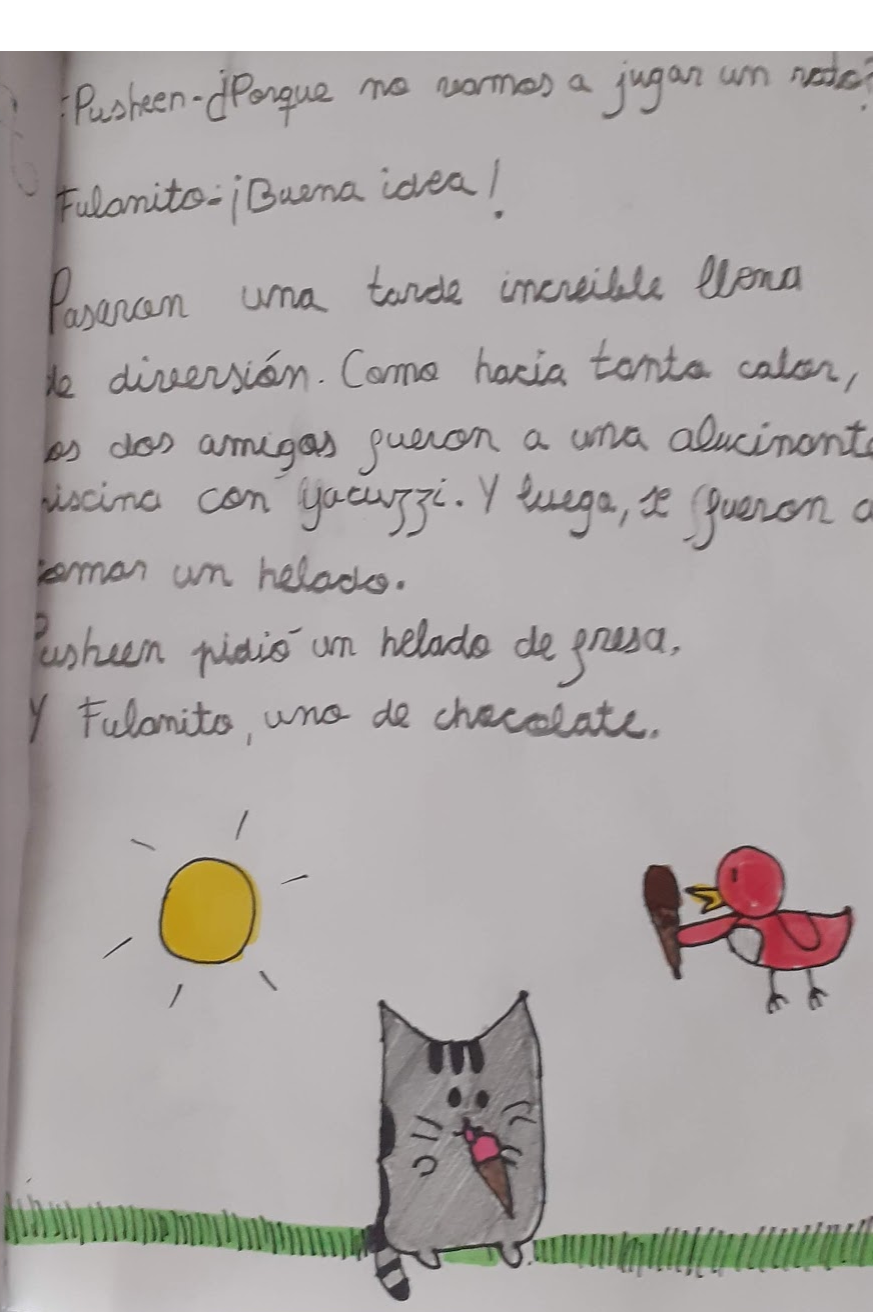 :Pusheen-¿Porque no vamos a jugar un rato?
Fulanito-¡Buena idea!
Pasaron una tarde increible llena
de diversión. Como hacia tanto calor,
os dos amigos fueron a una alucinante
piscina con yacuzzi. Y luego, se fueron a
tomar un helado.
Pusheen pidió un helado de fresa,
Y Fulanito, uno de chocolate.